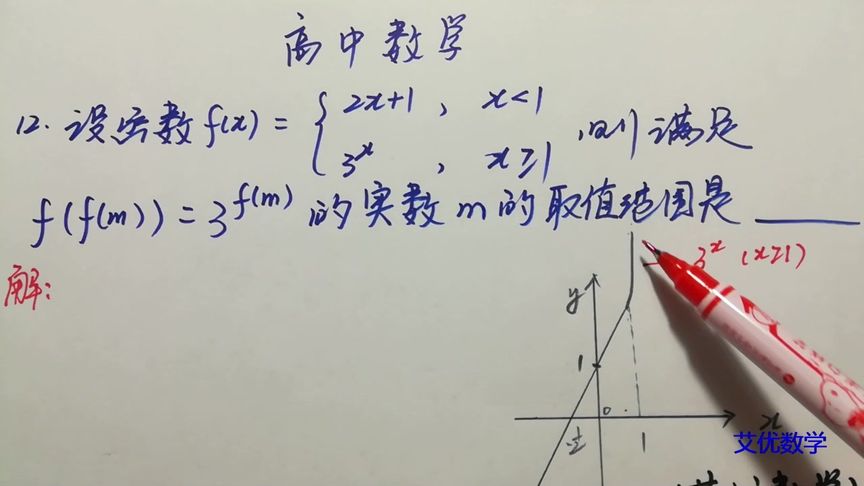 高中数学
12. 设函数 f(x) = { 2x+1 , x<1
3^x , x≥1 , 则满足
f(f(m)) = 3^{f(m)} 的实数 m 的取值范围是 ____
3^x (x≥1)
解:
y
1
0
x
1
艾优数学